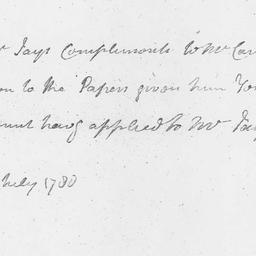 Jays Compliments to Mr Car
on to the Papers given him Yes
mount havg applied to Mr Jay
July 1780